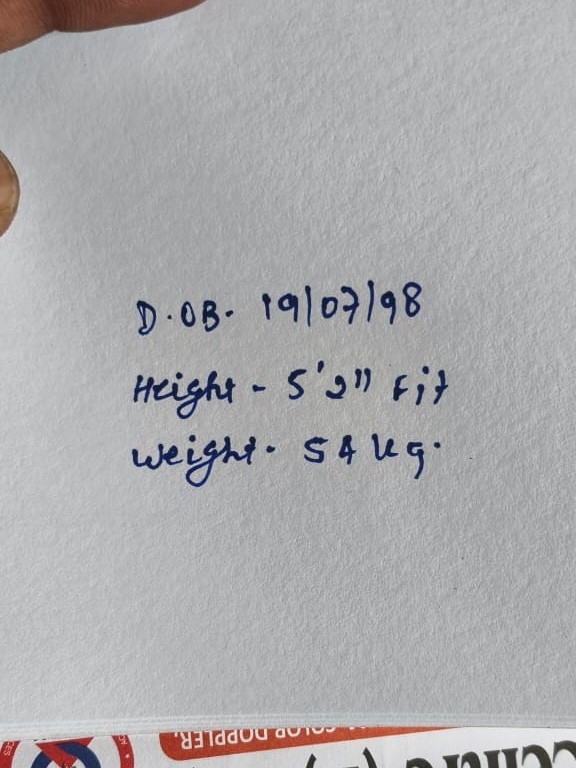 D.OB. 19/07/98
Height - 5'2" Fit
Weight. 54 kg.
COLOR DOPPLER.